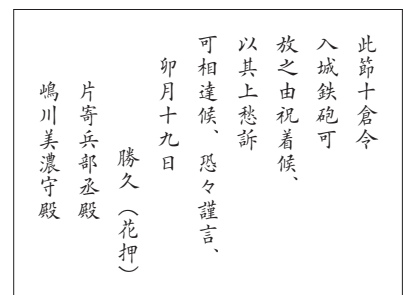 此節十倉今
入城鉄砲可
放之由祝着候、
以其上愁訴
可相達候、恐々謹言、
卯月十九日
勝久（花押）
片寄兵部丞殿
嶋川美濃守殿